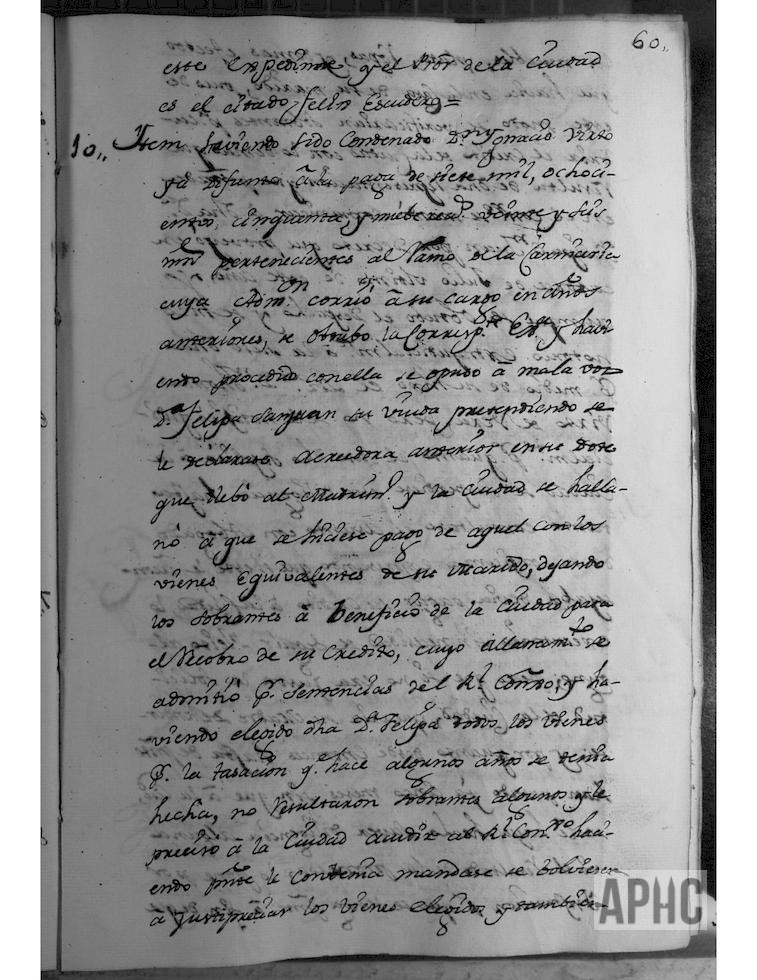 60,,
este Expediente y el Prôr de la Ciudad
es el citado Felix Escudero=
10,, Item haviendo sido Condenado Dn Ygnacio Virto
yá difunto â la paga de siete mil, ochoci-
entos, cinquenta, y nuebe rea.s veinte y seis
mrs pertenecientes al Ramo de la Carniceria
cuya Adm.on corrió â su cargo en años
anteriores, se obtubo la Corresp.te Ex.a y haci
endo procedido con ella se opuso â mala voz
D.a Felipa Sanjuan su viuda pretendiendo se
le declarase Acreedora anterior en su Dote
que llebó al Matrim.o y la Ciudad se halla-
nó â que se hiciese pago de aquel con los
vienes equivalentes de su Marido, dejando
los sobrantes â beneficio de la Ciudad para
el Recobro de su credito, cuyo allanam.to se
admitió p.r Sentencias del R.l Conso, y ha-
viendo elegido dha D.a Felipa todos los vienes
p.r la tasacion q.e hace algunos años se tenia
hecha, no resultaron sobrantes algunos y le
precisó â la Ciudad acudir al R.l Con.so haci
endo pnte le convenia mandase se bolviesen
â justipreciar los vienes elegidos y tambien
APHC